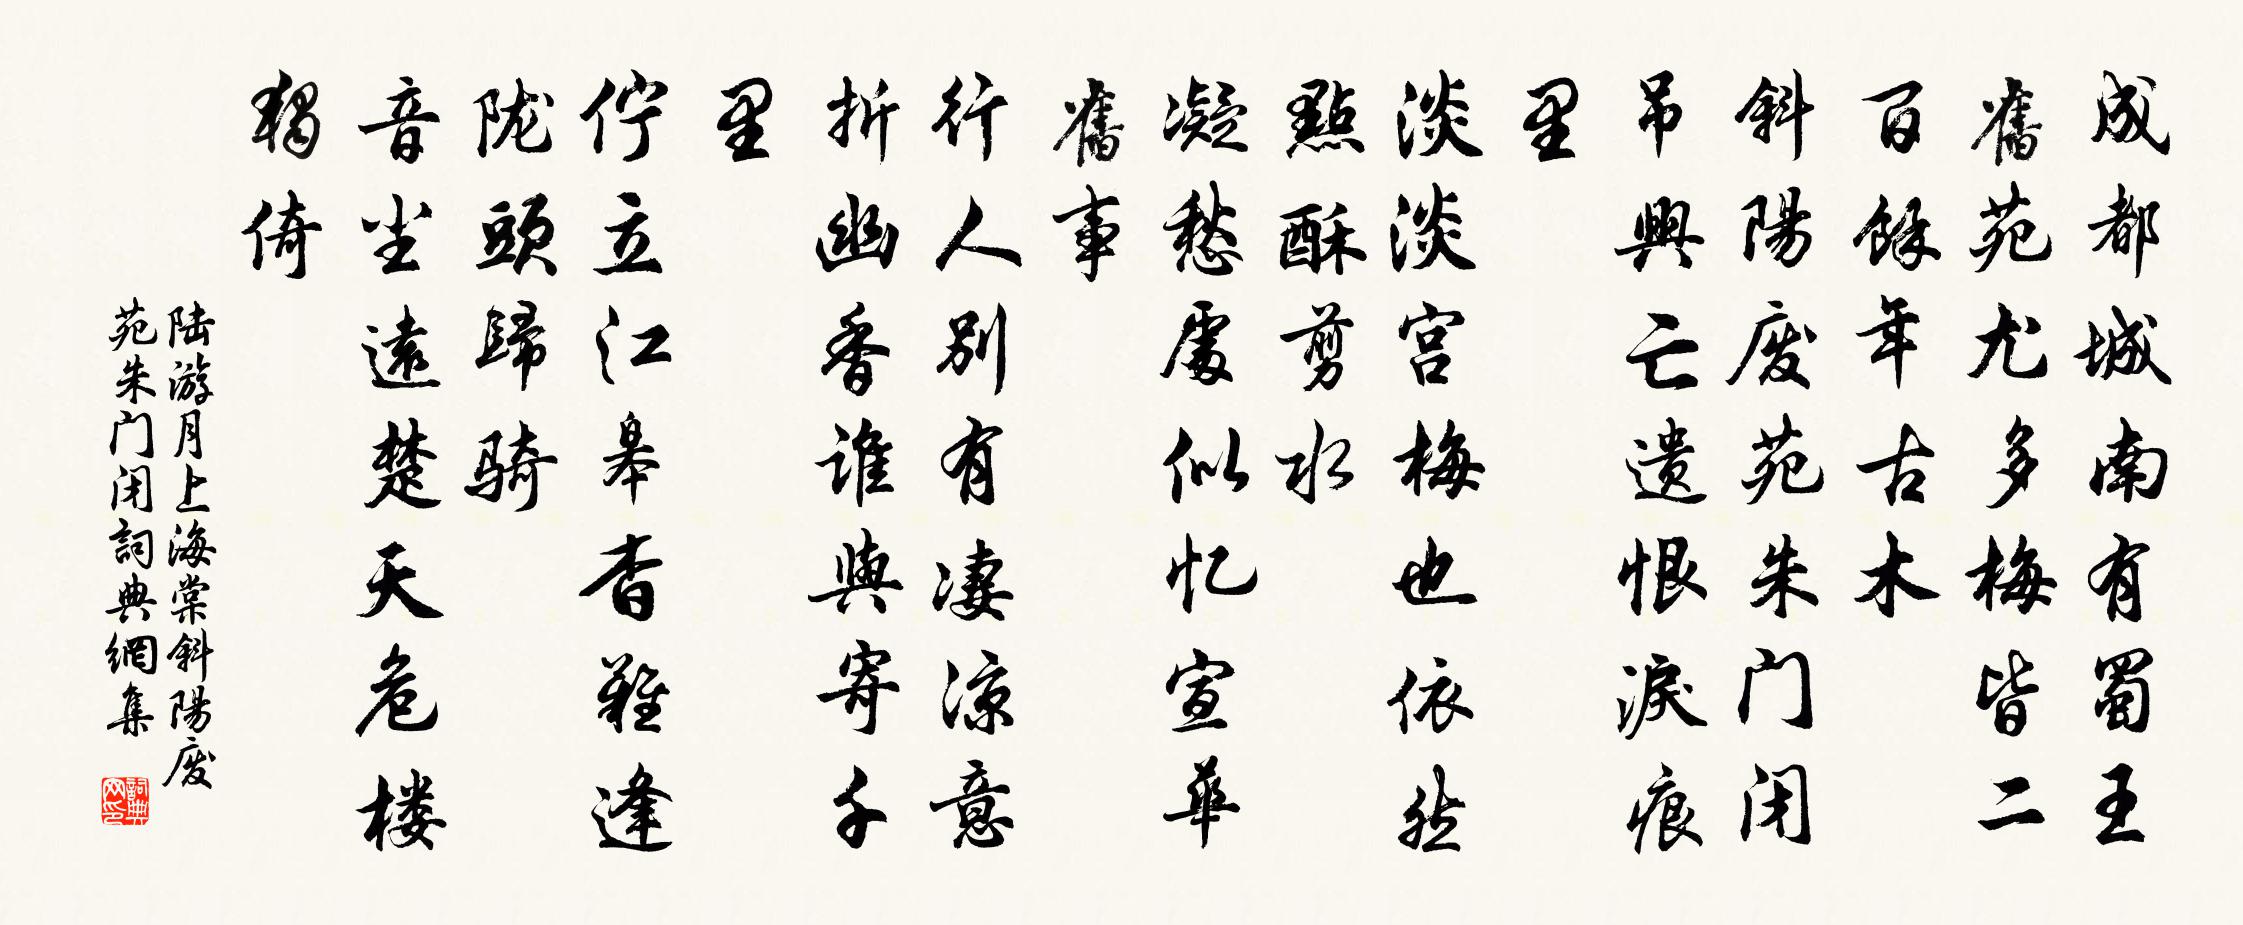 成都城南有蜀王
舊苑尤多梅皆二
百餘年古木
斜陽废苑朱门闭
吊興亡遗恨淚痕
里
淡淡宫梅也依然
點酥剪水
凝愁處似忆宣華
舊事
行人别有凄凉意
折幽香谁與寄千
里
佇立江皋杳難逢
陇頭歸骑
音尘遠楚天危楼
獨倚
陆游月上海棠斜陽废
苑朱门闭詞典網集
詞典
网印